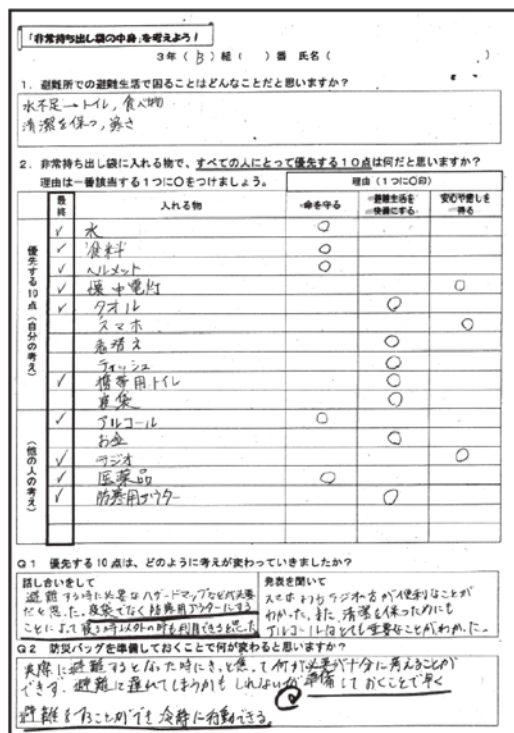 「非常持ち出し袋の中身」を考えよう！
3年（ B ）組（ ）番 氏名（ ）
1．避難所での避難生活で困ることはどんなことだと思いますか？
水不足→トイレ，食べ物
清潔を保つ，寒さ
2．非常持ち出し袋に入れる物で、すべての人にとって優先する１０点は何だと思いますか？
理由は一番該当する１つに〇をつけましょう。
理由（１つに〇印）
最終 入れる物 命を守る 避難生活を快適にする 安心や癒しを得る
優先する10点（自分の考え）
✓ 水 〇
✓ 食料 〇
✓ ヘルメット 〇
✓ 懐中電灯 〇
✓ タオル 〇
スマホ 〇
着替え 〇
ティッシュ 〇
✓ 携帯用トイレ 〇
寝袋 〇
（他の人の考え）
✓ アルコール 〇
お金 〇
✓ ラジオ 〇
✓ 医薬品 〇
✓ 防寒用アウター 〇
Q１ 優先する10点は、どのように考えが変わっていきましたか？
話し合いをして
避難する時に必要なハザードマップなどが必要
だと思った。寝袋でなく防寒用アウターにする
ことによって寝る時以外の時も利用できると思った
発表を聞いて
スマホよりもラジオの方が便利なことが
わかった。また、清潔を保つためにも
アルコールはとても重要なことがわかった。
Q２ 防災バッグを準備しておくことで何が変わると思いますか？
実際に避難するとなった時にきっと焦って何が必要か十分に考えることが
できず、避難に遅れてしまうかもしれないが準備しておくことで早く
避難をすることができ冷静に行動できる